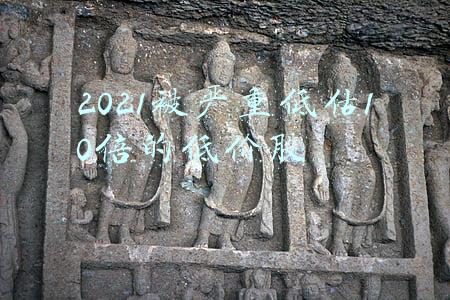 2021被严重低估1
0倍的低价股